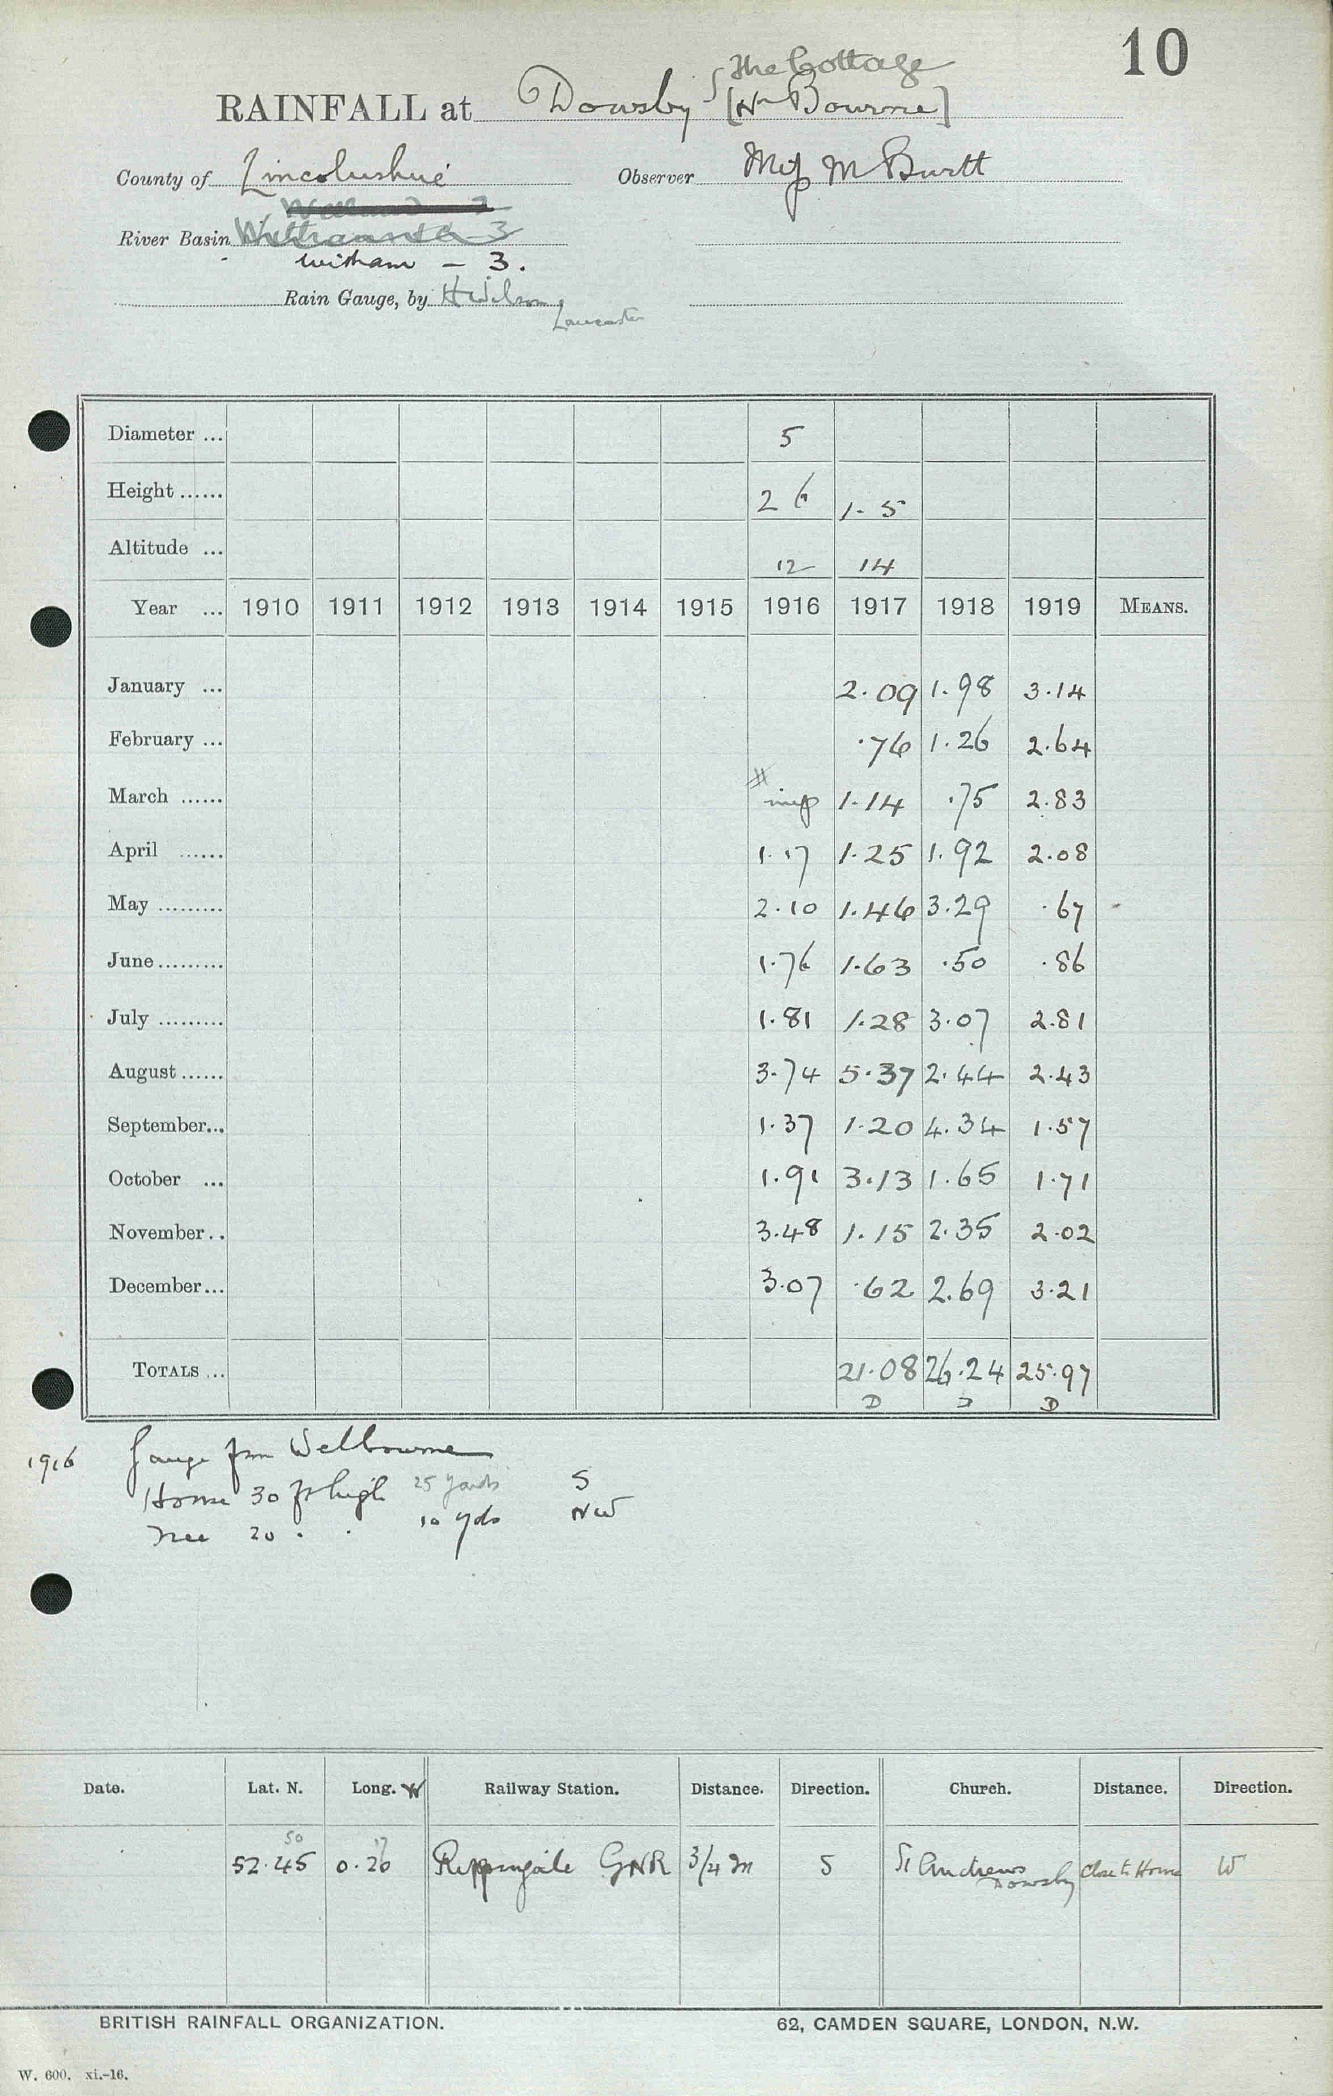 10
The Cottage
RAINFALL at Dowsby [Nr Bourne]
County of Lincolnshire Observer Miss M Burtt
River Basin
Witham - 3.
Rain Gauge, by H Wilson
Lancaster
Diameter ... 5
Height ...... 2 6 1.5
Altitude ... 12 14
Year ... 1910 1911 1912 1913 1914 1915 1916 1917 1918 1919 MEANS.
January ... 2.09 1.98 3.14
February ... .76 1.26 2.64
March ...... 1.14 .75 2.83
April ...... 1.17 1.25 1.92 2.08
May ......... 2.10 1.46 3.29 .67
June ......... 1.76 1.63 .50 .86
July ......... 1.81 1.28 3.07 2.81
August ...... 3.74 5.37 2.44 2.43
September... 1.37 1.20 4.34 1.57
October ... 1.91 3.13 1.65 1.71
November.. 3.48 1.15 2.35 2.02
December... 3.07 .62 2.69 3.21
TOTALS ... 21.08 26.24 25.97
D D D
1916 Gauge from Welbourne
House 30 ft high 25 yards S
Tree 20 . . 10 yds NW
Date. Lat. N. Long. W Railway Station. Distance. Direction. Church. Distance. Direction.
50 17
52.45 0.20 Rippingale GNR 3/4 m S St Andrews Dowsby Close to House W
BRITISH RAINFALL ORGANIZATION. 62, CAMDEN SQUARE, LONDON, N.W.
W. 600. xi.-16.